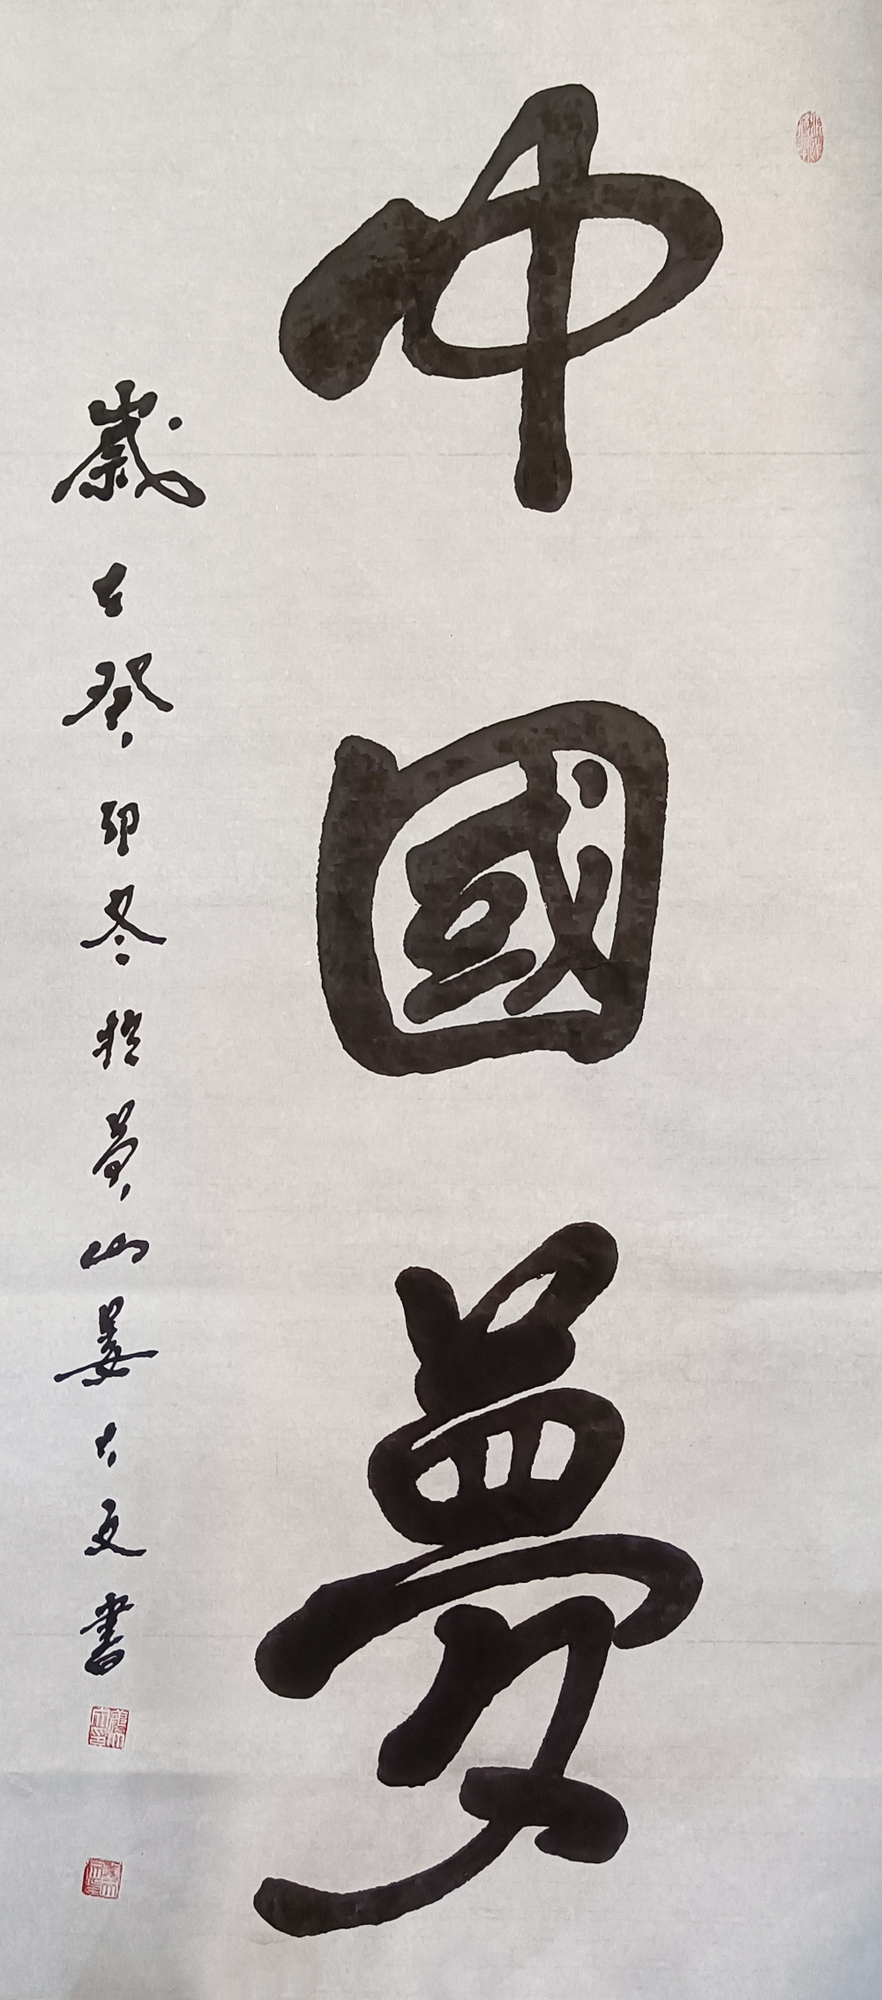 中國夢
歲在癸卯冬於黃山姜大文書